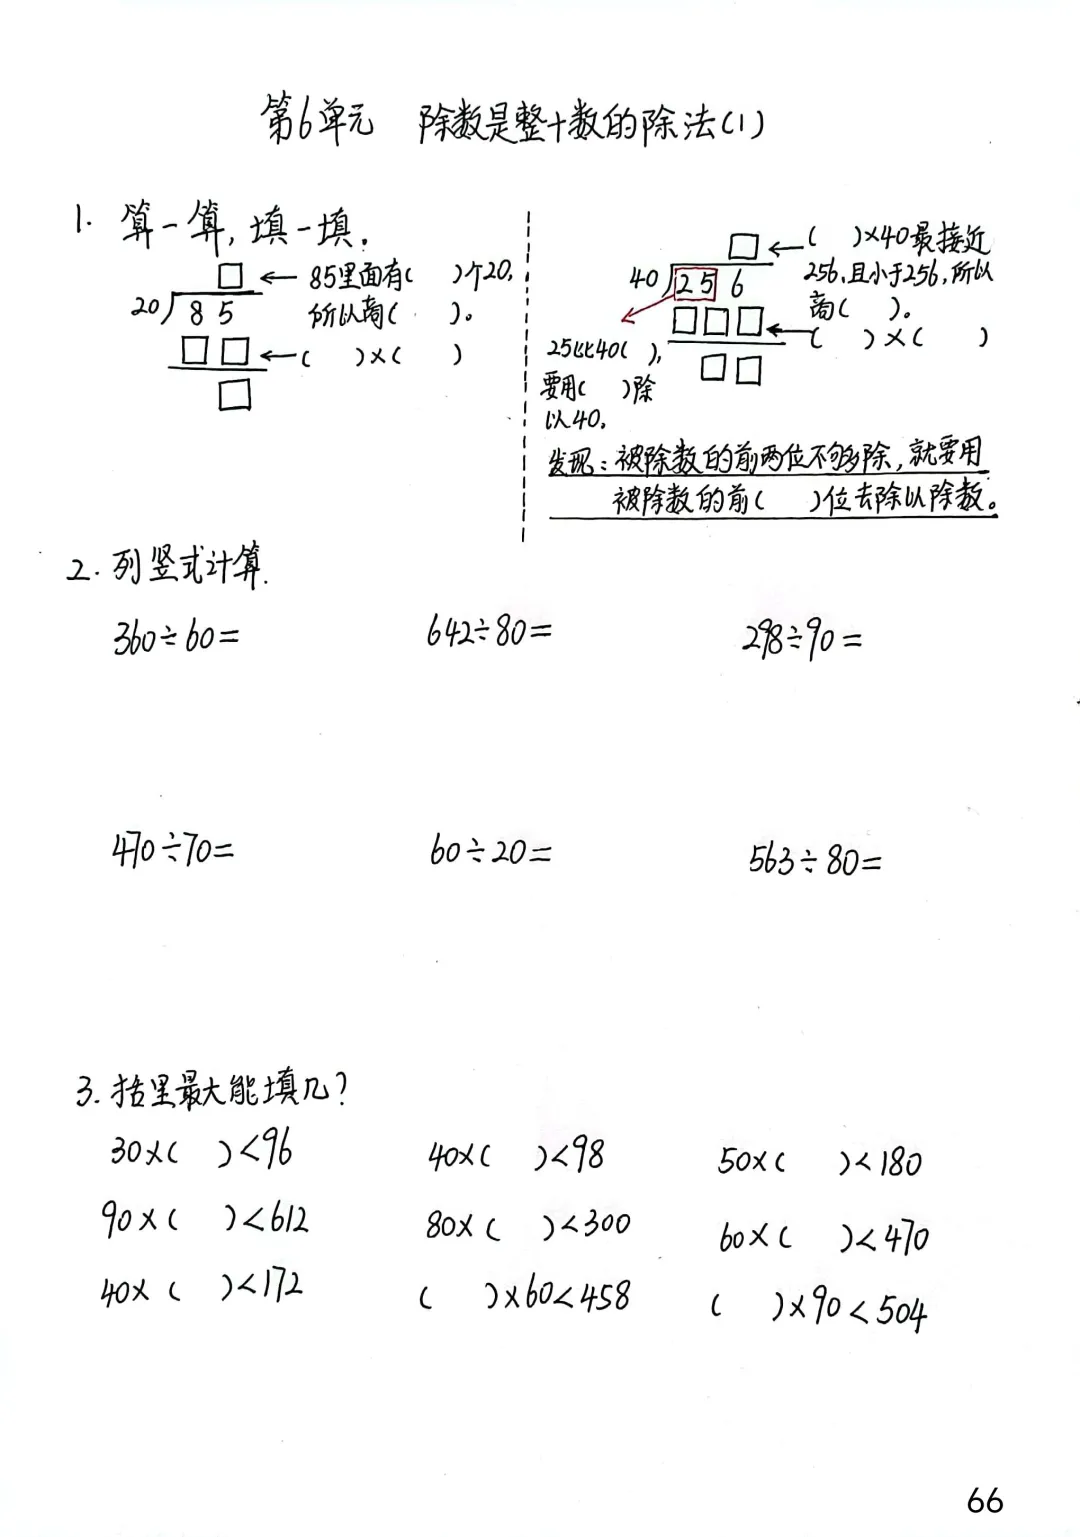 第6单元 除数是整十数的除法(1)
1. 算一算,填一填.
□ ← 85里面有( )个20,
20 85 所以商( )。
□□ ← ( )×( )
□
□ ← ( )×40最接近
40 256 256,且小于256,所以
商( )。
□□□ ← ( )×( )
25比40( ),
□□
要用( )除
以40.
发现:被除数的前两位不够除,就要用
被除数的前( )位去除以除数。
2. 列竖式计算.
360÷60= 642÷80= 298÷90=
470÷70= 60÷20= 563÷80=
3. 括里最大能填几?
30×( )<96 40×( )<98 50×( )<180
90×( )<612 80×( )<300 60×( )<470
40×( )<172 ( )×60<458 ( )×90<504
66